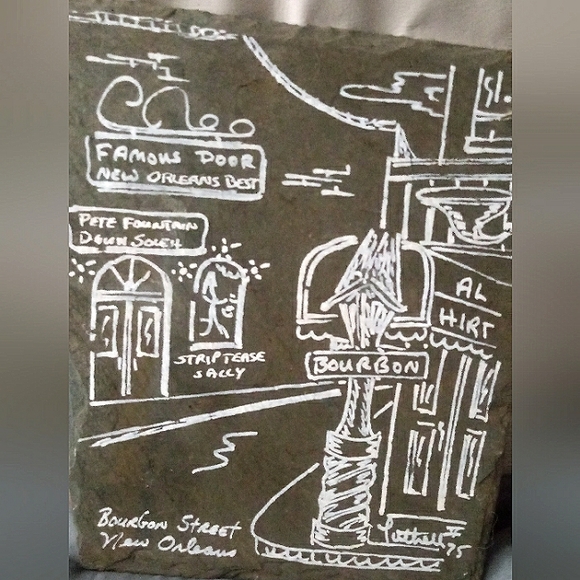 FAMOUS DOOR
NEW ORLEANS BEST
PETE FOUNTAIN
DOWN SOUTH
STRIPTEASE
SALLY
AL
HIRT
BOURBON
BOURBON STREET
New Orleans
75